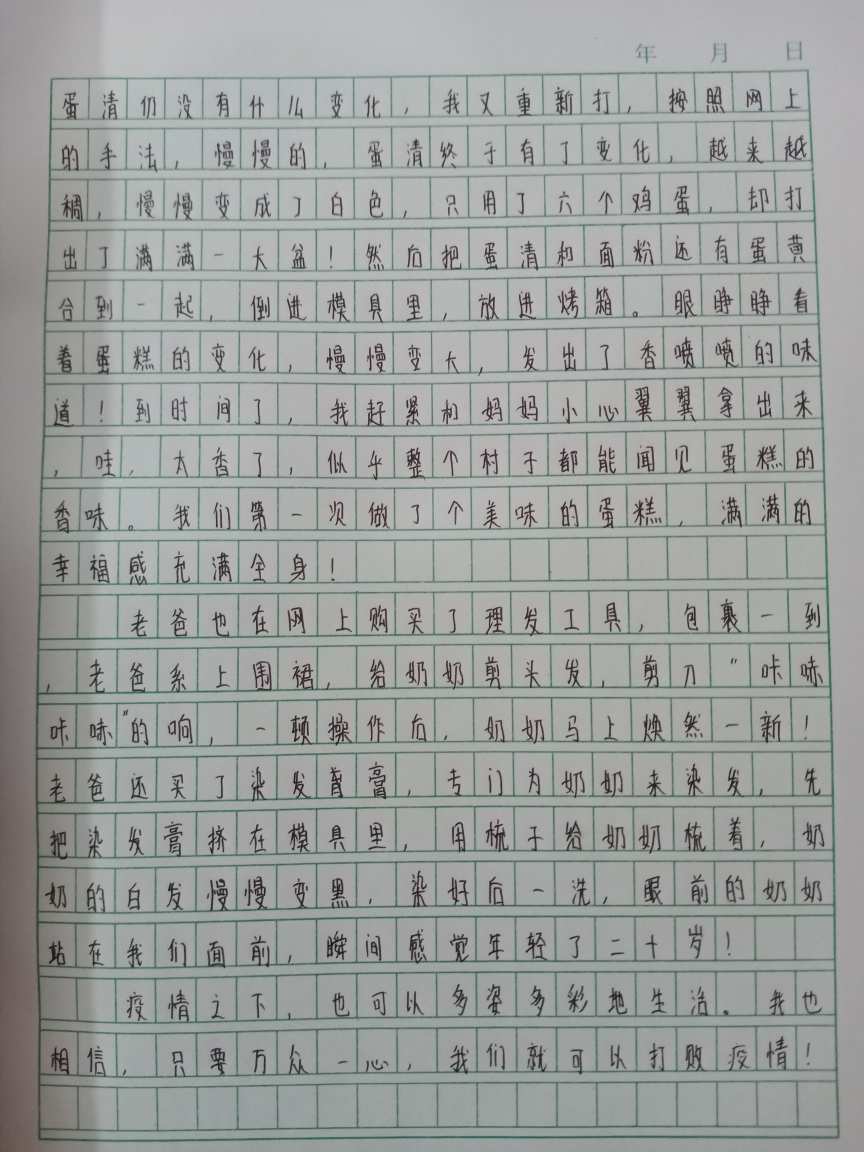 年 月 日
蛋清仍没有什么变化，我又重新打，按照网上
的手法，慢慢的，蛋清终于有了变化，越来越
稠，慢慢变成了白色，只用了六个鸡蛋，却打
出了满满一大盆！然后把蛋清和面粉还有蛋黄
合到一起，倒进模具里，放进烤箱。眼睁睁看
着蛋糕的变化，慢慢变大，发出了香喷喷的味
道！到时间了，我赶紧和妈妈小心翼翼拿出来
，哇，太香了，似乎整个村子都能闻见蛋糕的
香味。我们第一次做了个美味的蛋糕，满满的
幸福感充满全身！
老爸也在网上购买了理发工具，包裹一到
，老爸系上围裙，给奶奶剪头发，剪刀“咔哧
咔哧”的响，一顿操作后，奶奶马上焕然一新！
老爸还买了染发膏膏，专门为奶奶来染发，先
把染发膏挤在模具里，用梳子给奶奶梳着，奶
奶的白发慢慢变黑，染好后一洗，眼前的奶奶
站在我们面前，瞬间感觉年轻了二十岁！
疫情之下，也可以多姿多彩地生活。我也
相信，只要万众一心，我们就可以打败疫情！